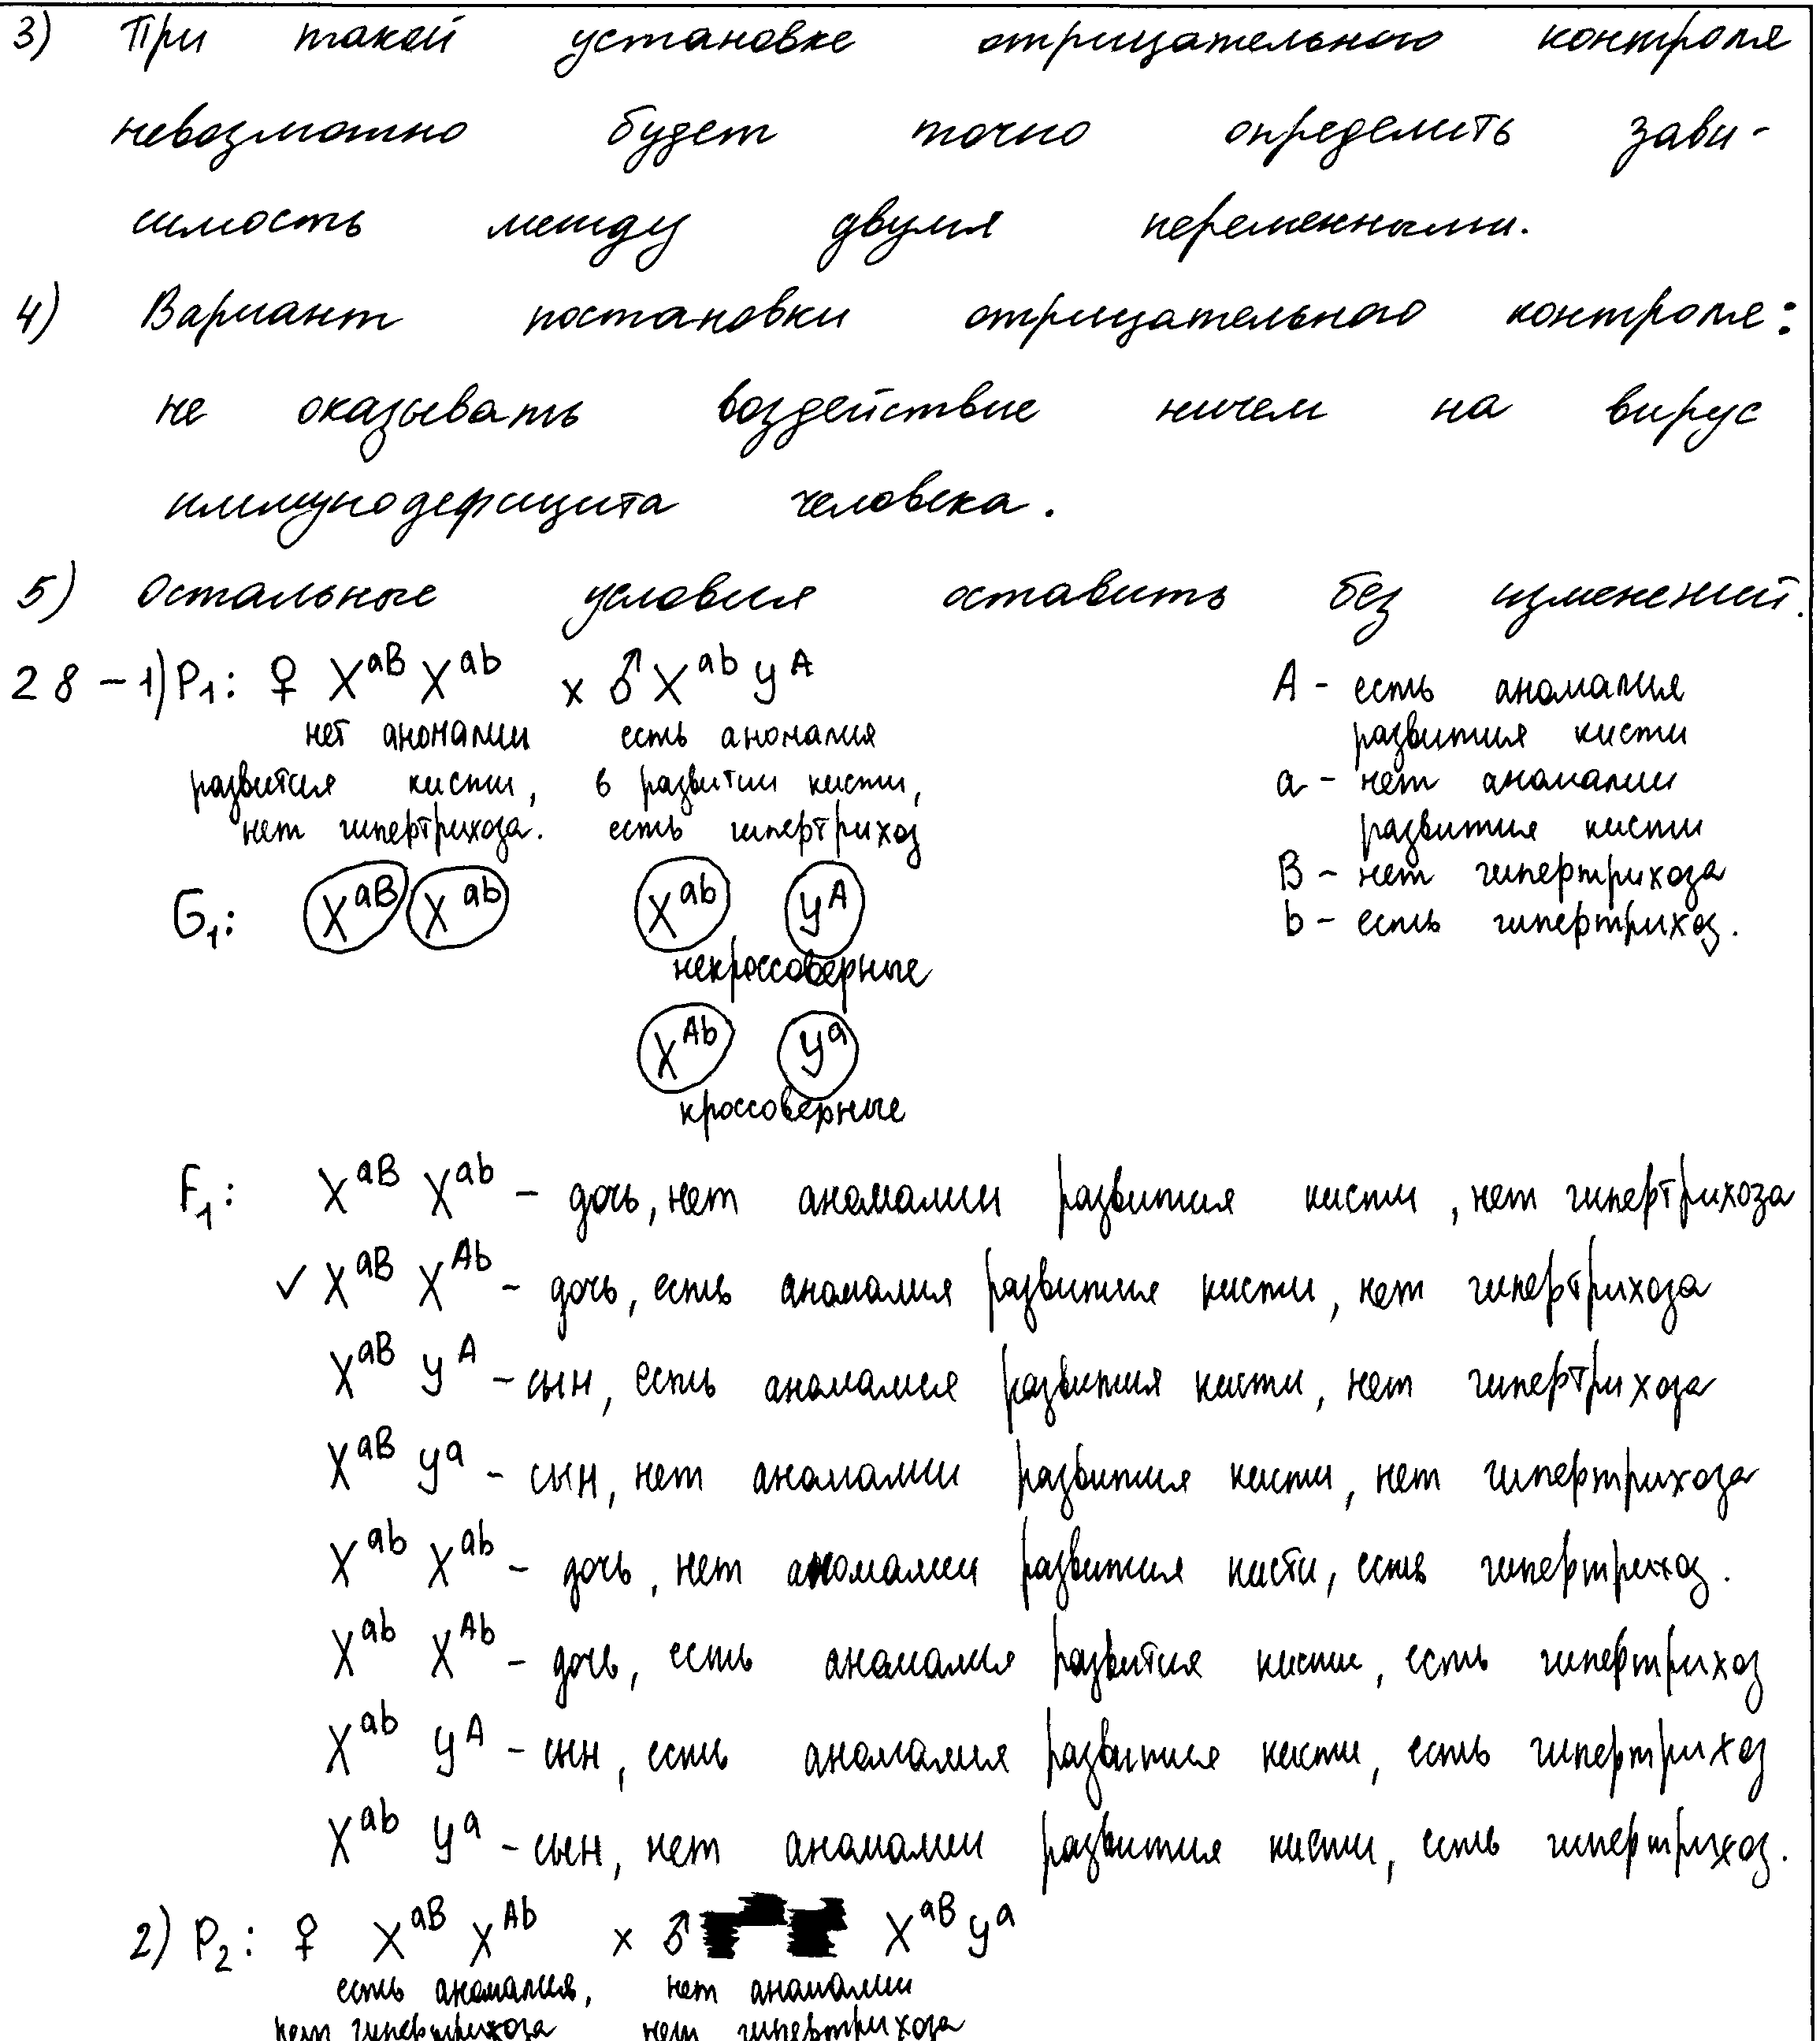 3) При такой установке отрицательного контроля
невозможно будет точно определить зави-
симость между двумя переменными.
4) Вариант постановки отрицательного контроля:
не оказывать воздействие ничем на вирус
иммунодефицита человека.
5) Остальные условия оставить без изменений.
28 - 1) P₁: ♀ X^aB X^ab x ♂ X^ab y^A A - есть аномалия
нет аномалии есть аномалия развития кисти
развития кисти, в развитии кисти, a - нет аномалии
нет гипертрихоза. есть гипертрихоз развития кисти
B - нет гипертрихоза
G₁: X^aB X^ab X^ab y^A b - есть гипертрихоз.
некроссоверные
X^Ab y^a
кроссоверные
F₁: X^aB X^ab - дочь, нет аномалии развития кисти, нет гипертрихоза
✓ X^aB X^Ab - дочь, есть аномалия развития кисти, нет гипертрихоза
X^aB y^A - сын, есть аномалия развития кисти, нет гипертрихоза
X^aB y^a - сын, нет аномалии развития кисти, нет гипертрихоза
X^ab X^ab - дочь, нет аномалии развития кисти, есть гипертрихоз.
X^ab X^Ab - дочь, есть аномалия развития кисти, есть гипертрихоз
X^ab y^A - сын, есть аномалия развития кисти, есть гипертрихоз
X^ab y^a - сын, нет аномалии развития кисти, есть гипертрихоз.
2) P₂: ♀ X^aB X^Ab x ♂ X^aB y^a
есть аномалия, нет аномалии
нет гипертрихоза нет гипертрихоза